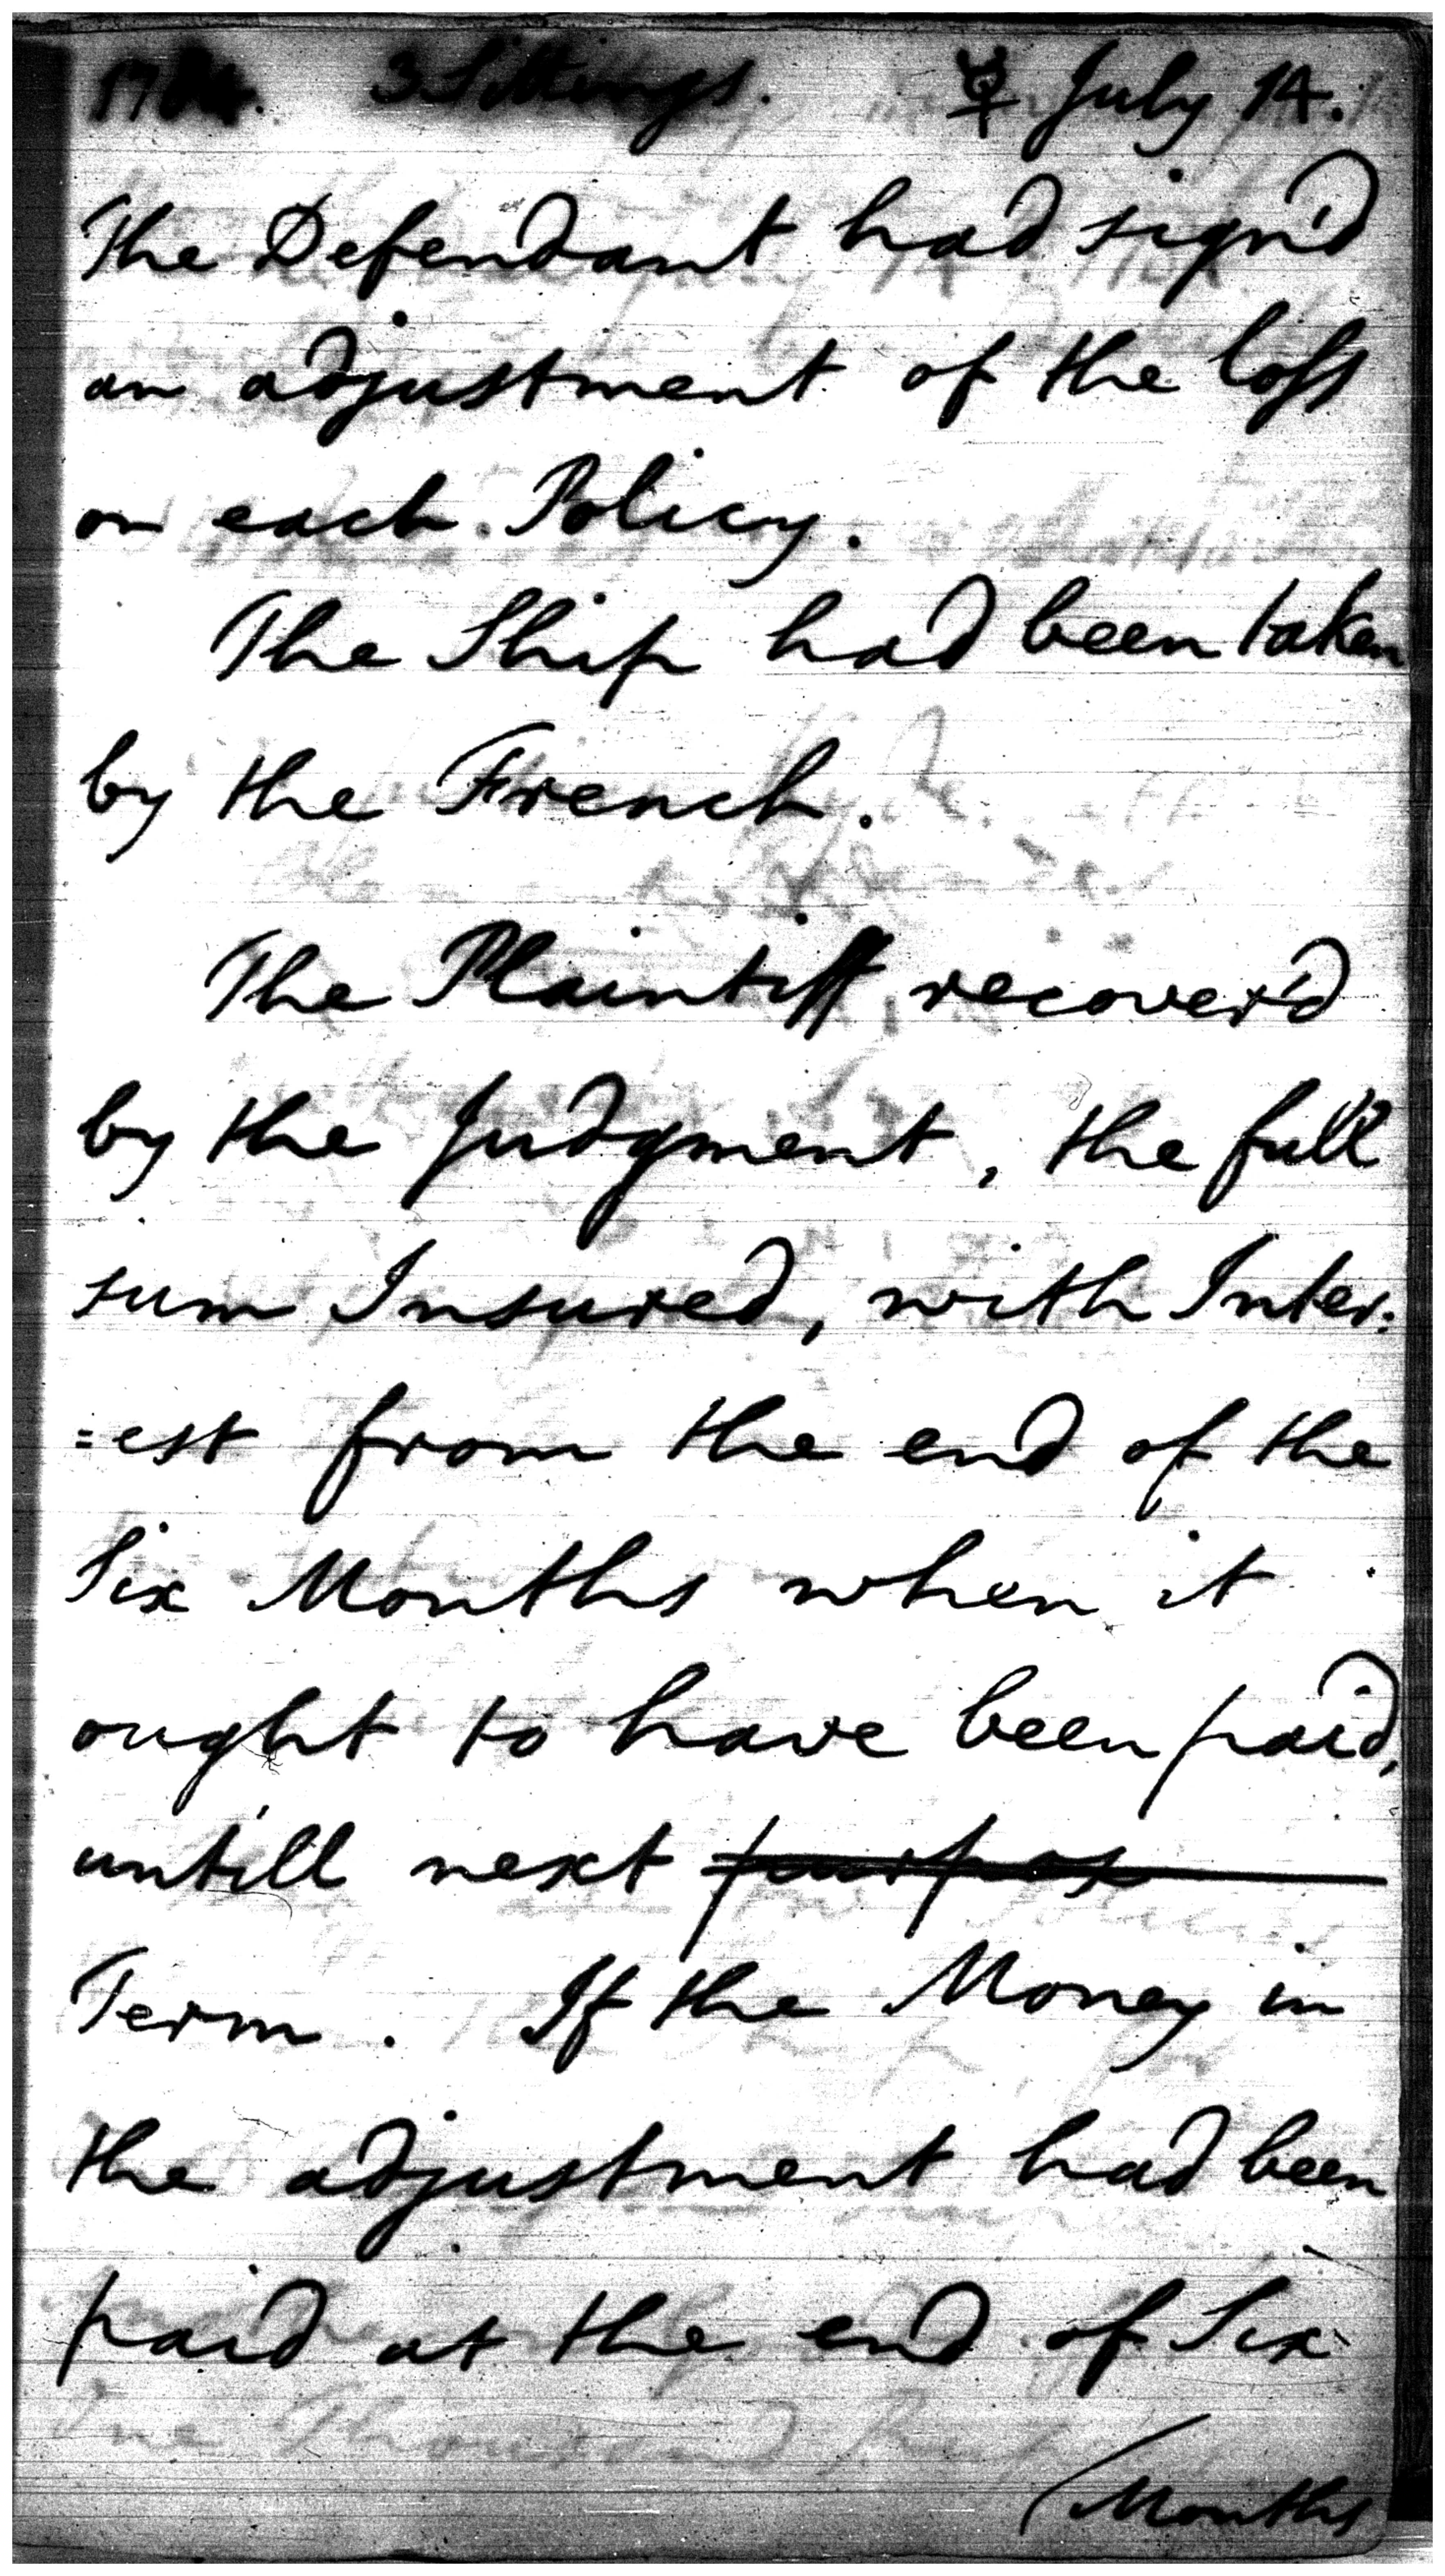 1784. 3 Sittings. ☿ July 14.
The Defendant had sign'd
an adjustment of the loss
on each Policy.
The Ship had been taken
by the French.
The Plaintiff recover'd
by the Judgment, the full
sum Insured, with Inter:
=est from the end of the
Six Months when it
ought to have been paid,
untill next
Term. If the Money in
the adjustment had been
paid at the end of Six
(Months